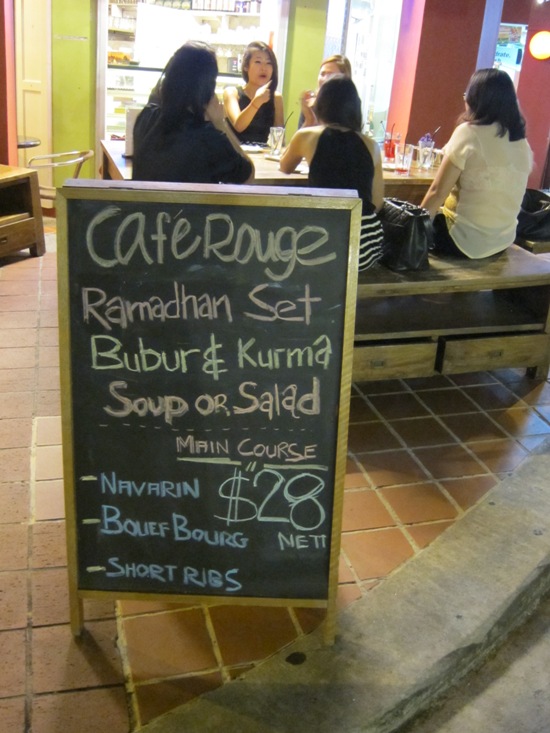 Café Rouge
Ramadhan Set
Bubur & Kurma
Soup or Salad
Main Course
- Navarin $28
- Bouef Bourg Nett
- Short Ribs